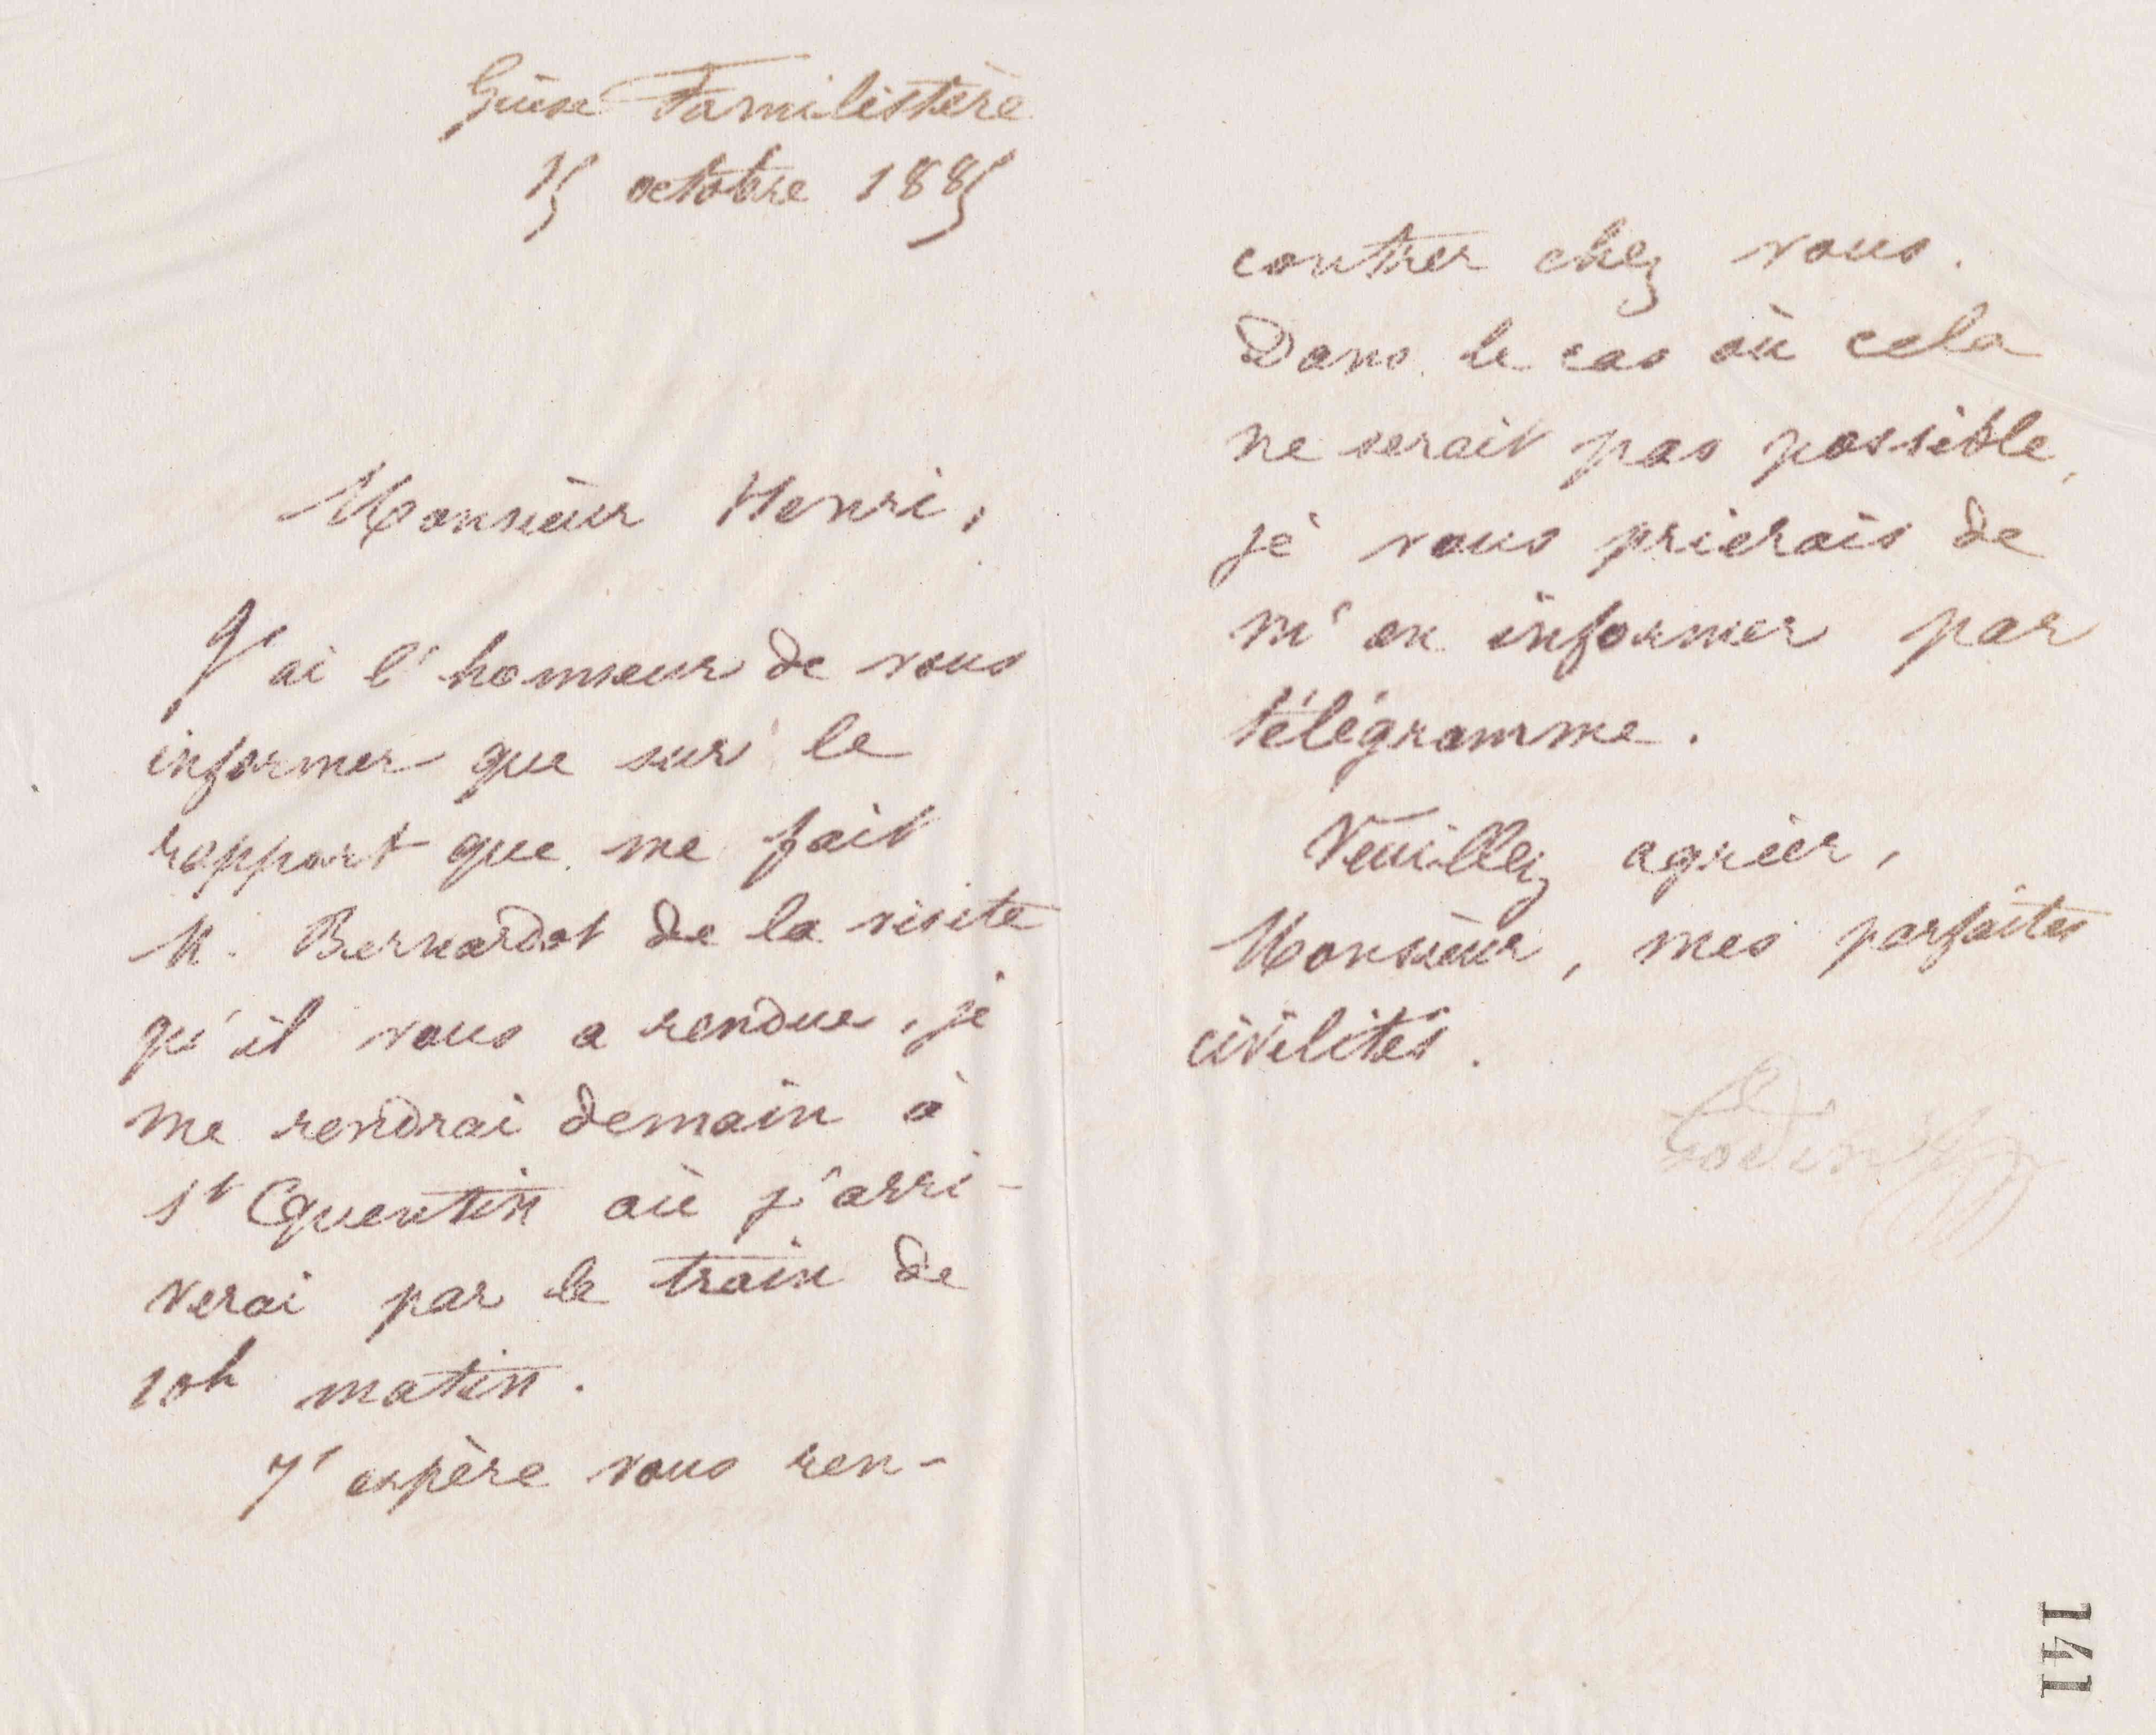 Guise Familistère
15 octobre 1885
Monsieur Henri,
J'ai l'honneur de vous
informer que sur le
rapport que me fait
M. Bernardot de la visite
qu'il vous a rendue, je
me rendrai demain à
St Quentin où j'arri-
verai par le train de
10h matin.
J'espère vous ren-
contrer chez vous.
Dans le cas où cela
ne serait pas possible,
je vous prierais de
m'en informer par
télégramme.
Veuillez agréer,
Monsieur, mes parfaites
civilités.
Godin
141